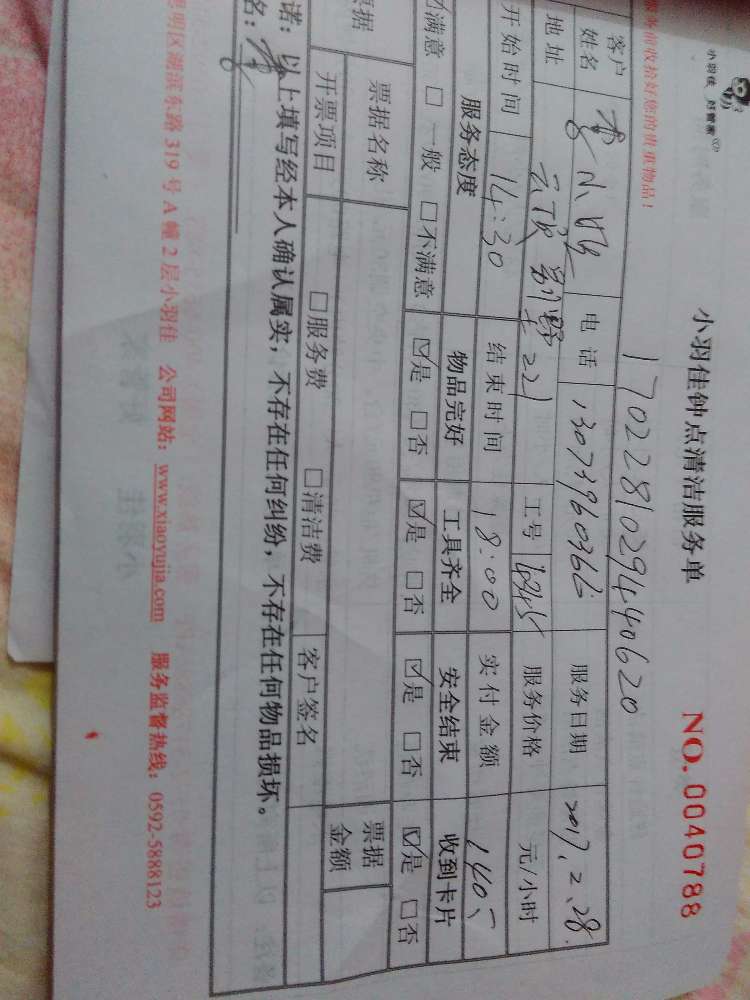 小羽佳 好管家
小羽佳钟点清洁服务单
NO.0040788
服务前收拾好您的贵重物品!
17022810294440620
客户姓名 李小姐 电话 13073960366 服务日期 2017.2.28.
地址 云顶别野 221 工号 6945 服务价格 元/小时
开始时间 14:30 结束时间 18:00 实付金额 140
服务态度 物品完好 工具齐全 安全结束 收到卡片
满意 □一般 □不满意 ☑是 □否 ☑是 □否 ☑是 □否 ☑是 □否
票据
票据名称 票据金额
开票项目 □服务费 □清洁费 客户签名
诺:以上填写经本人确认属实,不存在任何纠纷,不存在任何物品损坏。
名:李
思明区湖滨东路319号A幢2层小羽佳 公司网站:www.xiaoyujia.com 服务监督热线:0592-5888123